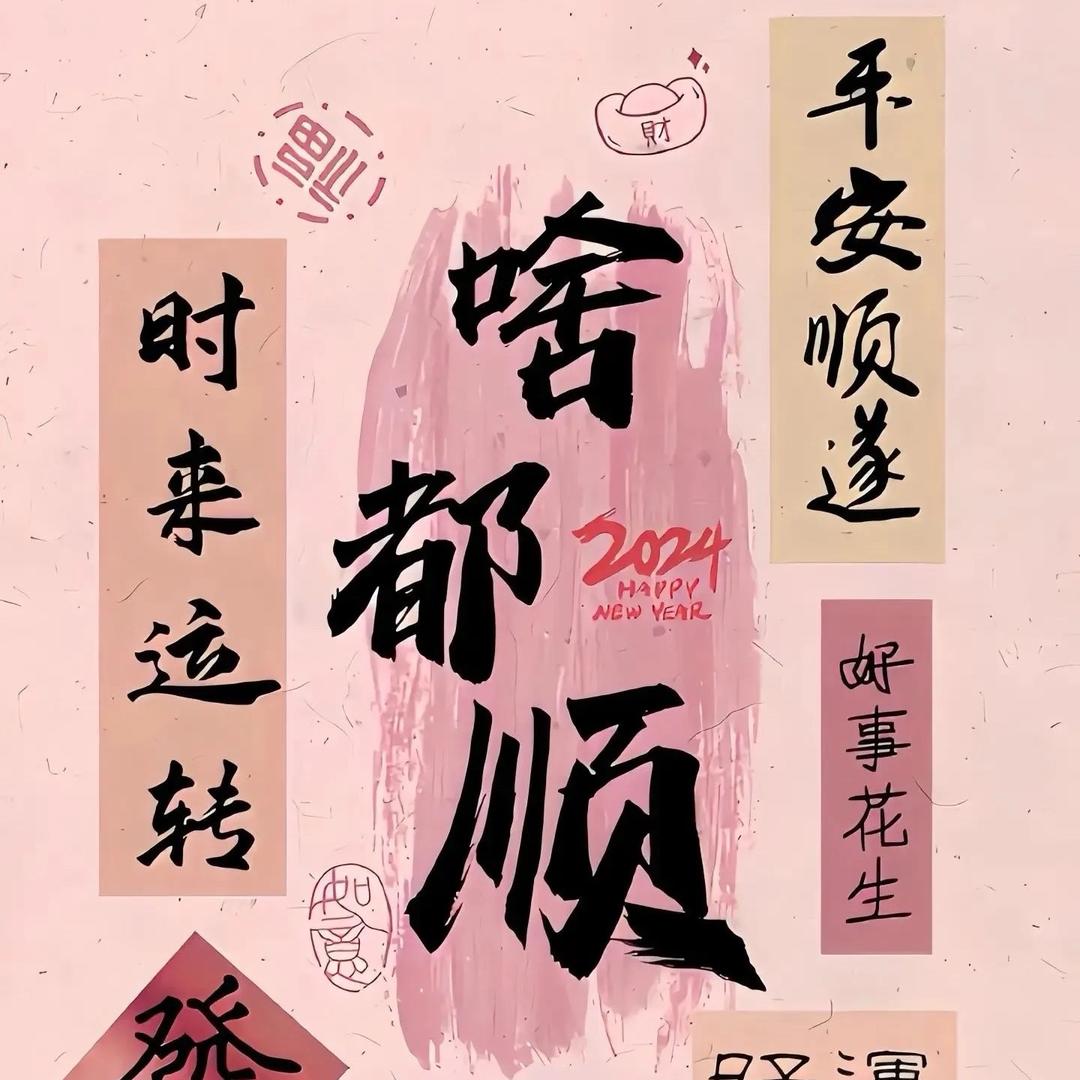 財
福
平安顺遂
啥都顺
时来运转
2024
HAPPY
NEW YEAR
好事花生
如意
發